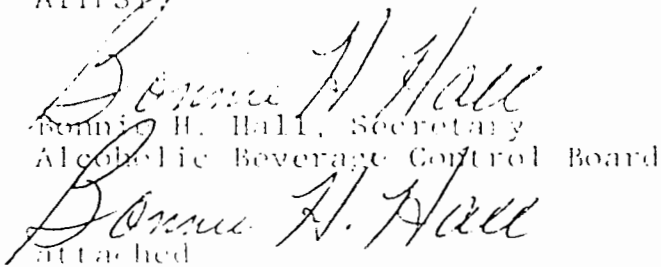 ATTEST:
Bonnie H Hall
Bonnie H. Hall, Secretary
Alcoholic Beverage Control Board
Bonnie H. Hall
attached